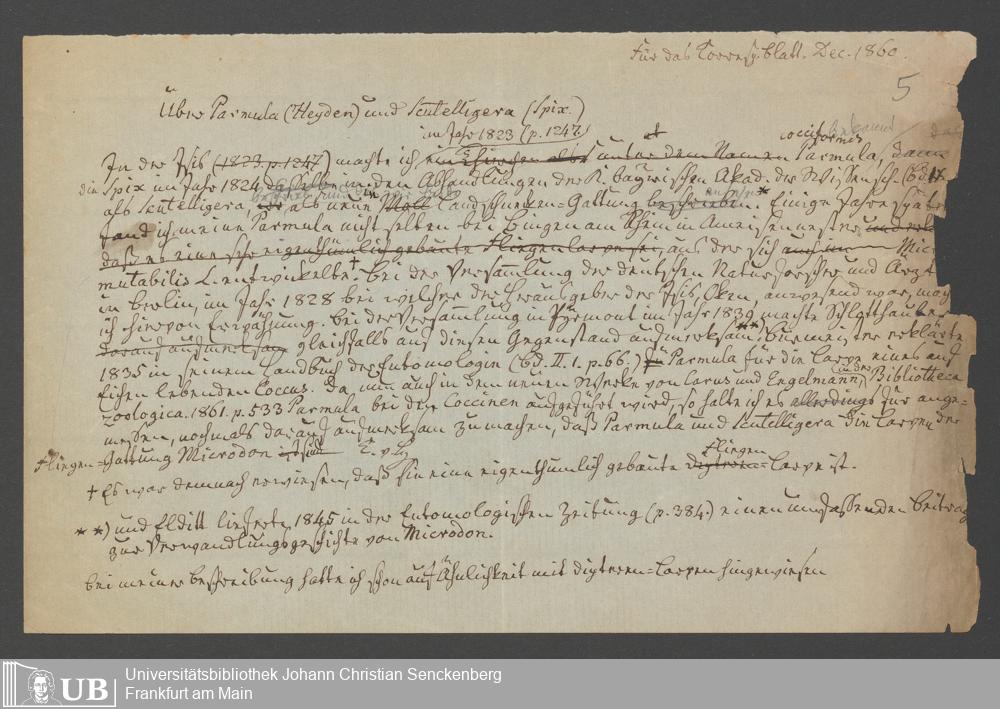 Für das Corresp. blatt. Dec. 1860.
5
Über Parmula (Heyden) und Scutelligera (Spix.)
im Jahr 1823 (p. 1247)
In der Isis (1823. p. 1247) machte ich unter dem Namen Parmula, cocciformis bekannt
die Spix im Jahr 1824 dasselbe in den Abhandlungen der K. bayrischen Akad. der Wissensch. (Bd.
als Scutelligera, als neue Landschnecken-Gattung beschrieben. * Einige Jahre später
fand ich meine Parmula nicht selten bei Bingen am Rhein in Ameisennestern und
daß es eine sehr eigenthümlich gebaute Fliegenlarve sei, aus der sich Mic
mutabilis L. entwickelte † Bei der Versamlung der deutschen Naturforscher und Ärzt
in Berlin, im Jahr 1828 bei welcher der Herausgeber der Isis, Oken, anwesend war, mach
ich hiervon Erwähnung. Bei der Versamlung in Pyrmont im Jahr 1839 machte Schlotthauber
darauf aufmerksam gleichfalls auf diesen Gegenstand aufmerksam **) Burmeister erklärte
1835 in seinem Handbuch der Entomologie (Bd. II. 1. p. 66.) Parmula für die Larve eines auf
Eichen lebenden Coccus. Da nun auch in dem neuen Werke von Carus und Engelmann, (in der Bibliotheca
zoologica. 1861. p. 533 Parmula bei den Coccinen aufgeführt wird, so halte ich es allerdings für ange=
messen, nochmals darauf aufmerksam zu machen, daß Parmula und Scutelligera die Larven der
Fliegen-Gattung Microdon sind
† Es war demnach erwiesen, daß sie eine eigenthümlich gebaute Fliegen Dipteren=Larve ist.
**) und Elditt lieferte 1845 in der Entomologischen Zeitung (p. 384.) einen umfassenden Beitrag
zur Verwandlungsgeschichte von Microdon.
Bei meiner Beschreibung hatte ich schon auf Ähnlichkeit mit Dipteren=Larven hingewiesen
UB
Universitätsbibliothek Johann Christian Senckenberg
Frankfurt am Main